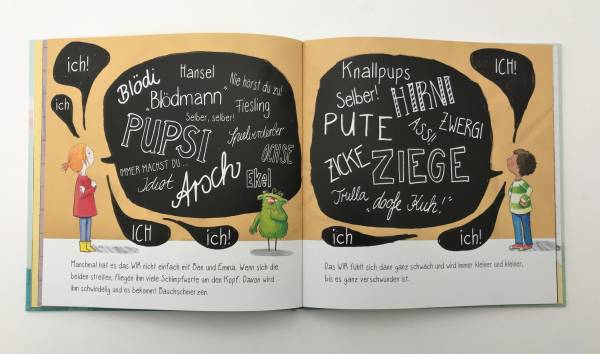 ich!
ich
Blödi
Hansel
Nie hörst du zu!
„Blödmann"
Fiesling
Selber, selber!
PUPSI
Spielverderber
OCHSE
IMMER MACHST DU...
Idiot
Arsch
Ekel
ICH
ich!
Manchmal hat es das WIR nicht einfach mit Ben und Emma. Wenn sich die
beiden streiten, fliegen ihm viele Schimpfworte um den Kopf. Davon wird
ihm schwindelig und es bekommt Bauchschmerzen.
ICH!
Knallpups
Selber!
HIRNI
PUTE
Ass!!
ZWERGI
ZICKE
ZIEGE
Trulla
„doofe Kuh!"
ich
ich!
Das WIR fühlt sich dann ganz schwach und wird immer kleiner und kleiner,
bis es ganz verschwunden ist.